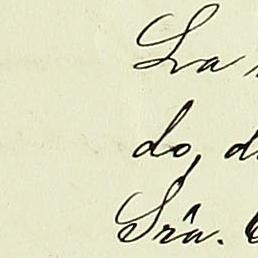 La
do, d
Srâ.